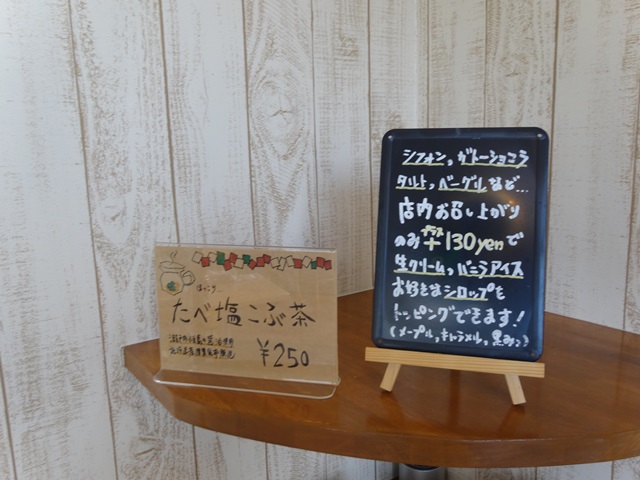 ほっこり
たべ塩こぶ茶
¥250
シフォン、ガトーショコラ
タルト、ベーグルなど...
店内お召し上がり
のみ プラス
+130yenで
生クリーム、バニラアイス
お好きなシロップを
トッピングできます!
(メープル、キャラメル、黒みつ)